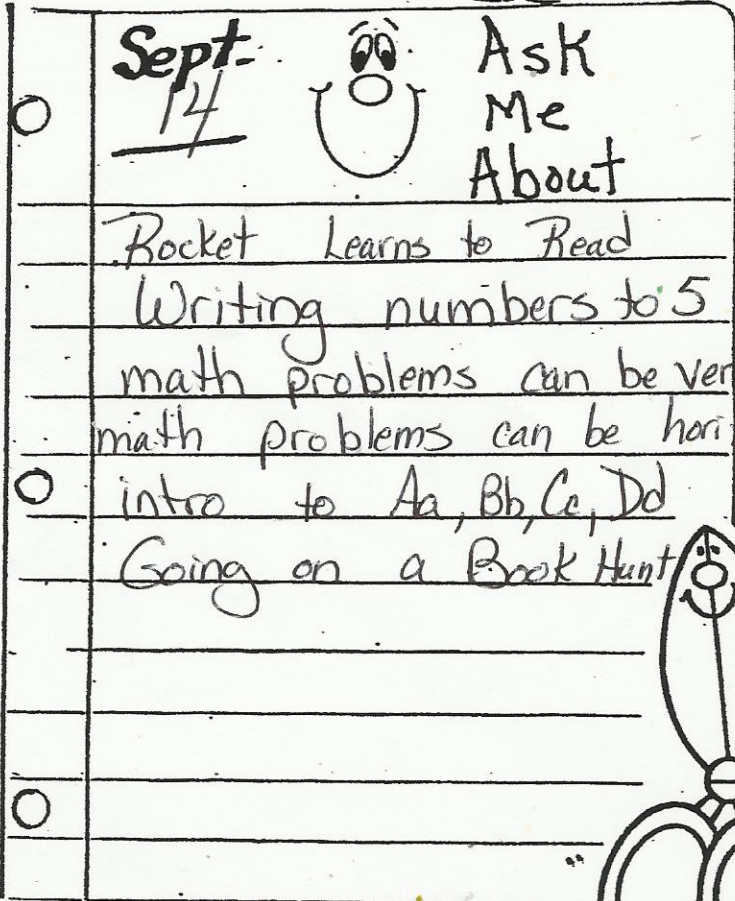 Sept.
14
Ask
Me
About
Rocket Learns to Read
Writing numbers to 5
math problems can be ver
math problems can be hori
intro to Aa, Bb, Cc, Dd
Going on a Book Hunt